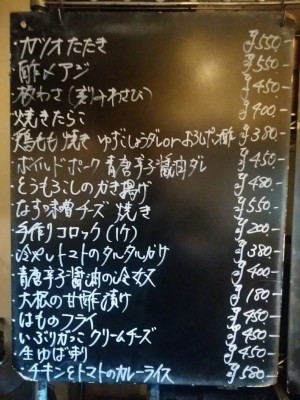 ・カツオたたき ¥550-
・酢〆アジ ¥550-
・板わさ(刻みわさび) ¥450-
・焼きたらこ ¥400-
・鶏もも焼き ゆずこしょうダレorおろしポン酢 ¥380-
・ボイルドポーク 青唐辛子醤油ダレ ¥450-
・とうもろこしのかき揚げ ¥480-
・なすの味噌チーズ焼き ¥550-
・手作りコロッケ(1ケ) ¥200-
・冷やしトマトのタルタルがけ ¥380-
・青唐辛子醤油の冷奴 ¥400-
・大根の甘酢漬け ¥180-
・はものフライ ¥450-
・いぶりがっこクリームチーズ ¥450-
・生ゆば刺 ¥450-
・チキンとトマトのカレーライス ¥580-